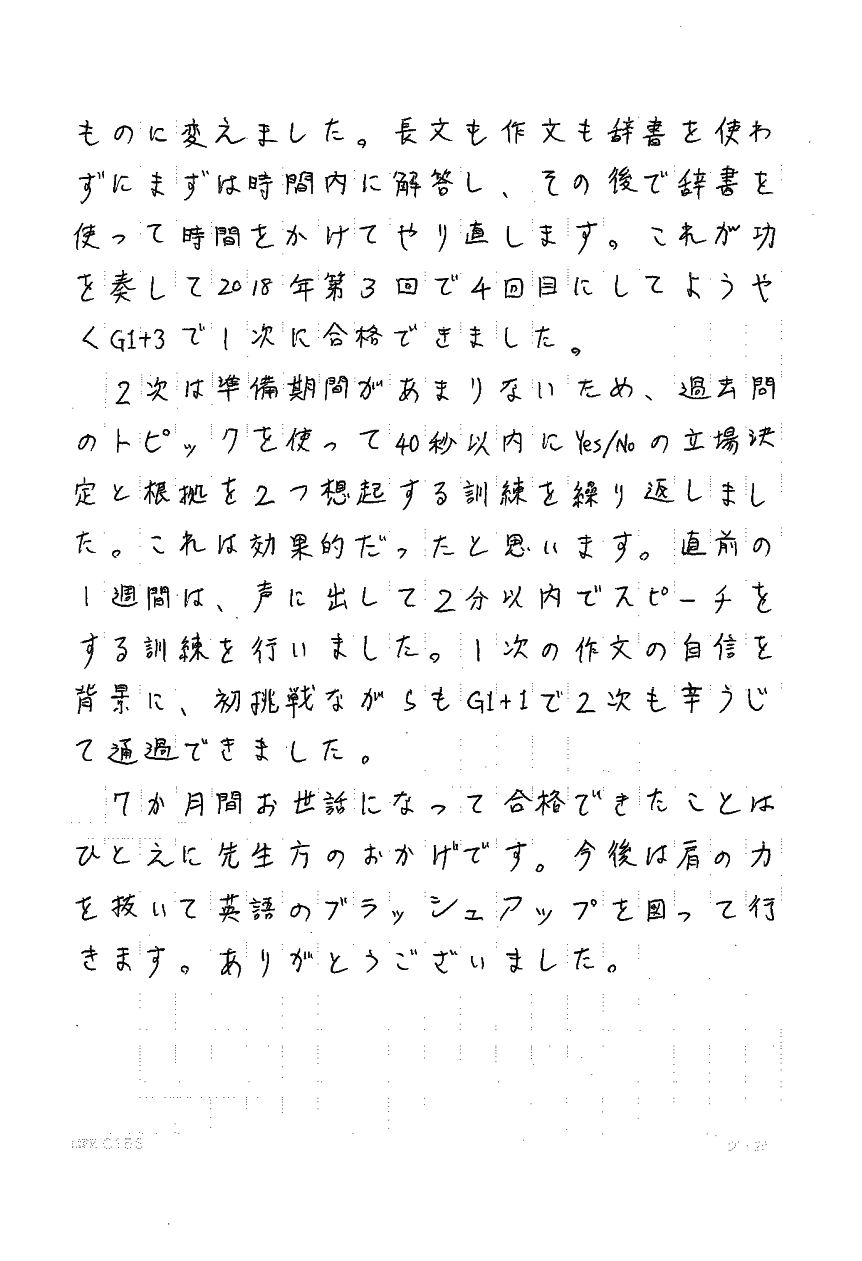 ものに変えました。長文も作文も辞書を使わ
ずにまずは時間内に解答し、その後で辞書を
使って時間をかけてやり直します。これが功
を奏して2018年第3回で4回目にしてようや
くG1+3で1次に合格できました。
2次は準備期間があまりないため、過去問
のトピックを使って40秒以内にYes/Noの立場決
定と根拠を2つ想起する訓練を繰り返しまし
た。これは効果的だったと思います。直前の
1週間は、声に出して2分以内でスピーチを
する訓練を行いました。1次の作文の自信を
背景に、初挑戦ながらもG1+1で2次も辛うじ
て通過できました。
7か月間お世話になって合格できたことは
ひとえに先生方のおかげです。今後は肩の力
を抜いて英語のブラッシュアップを図って行
きます。ありがとうございました。